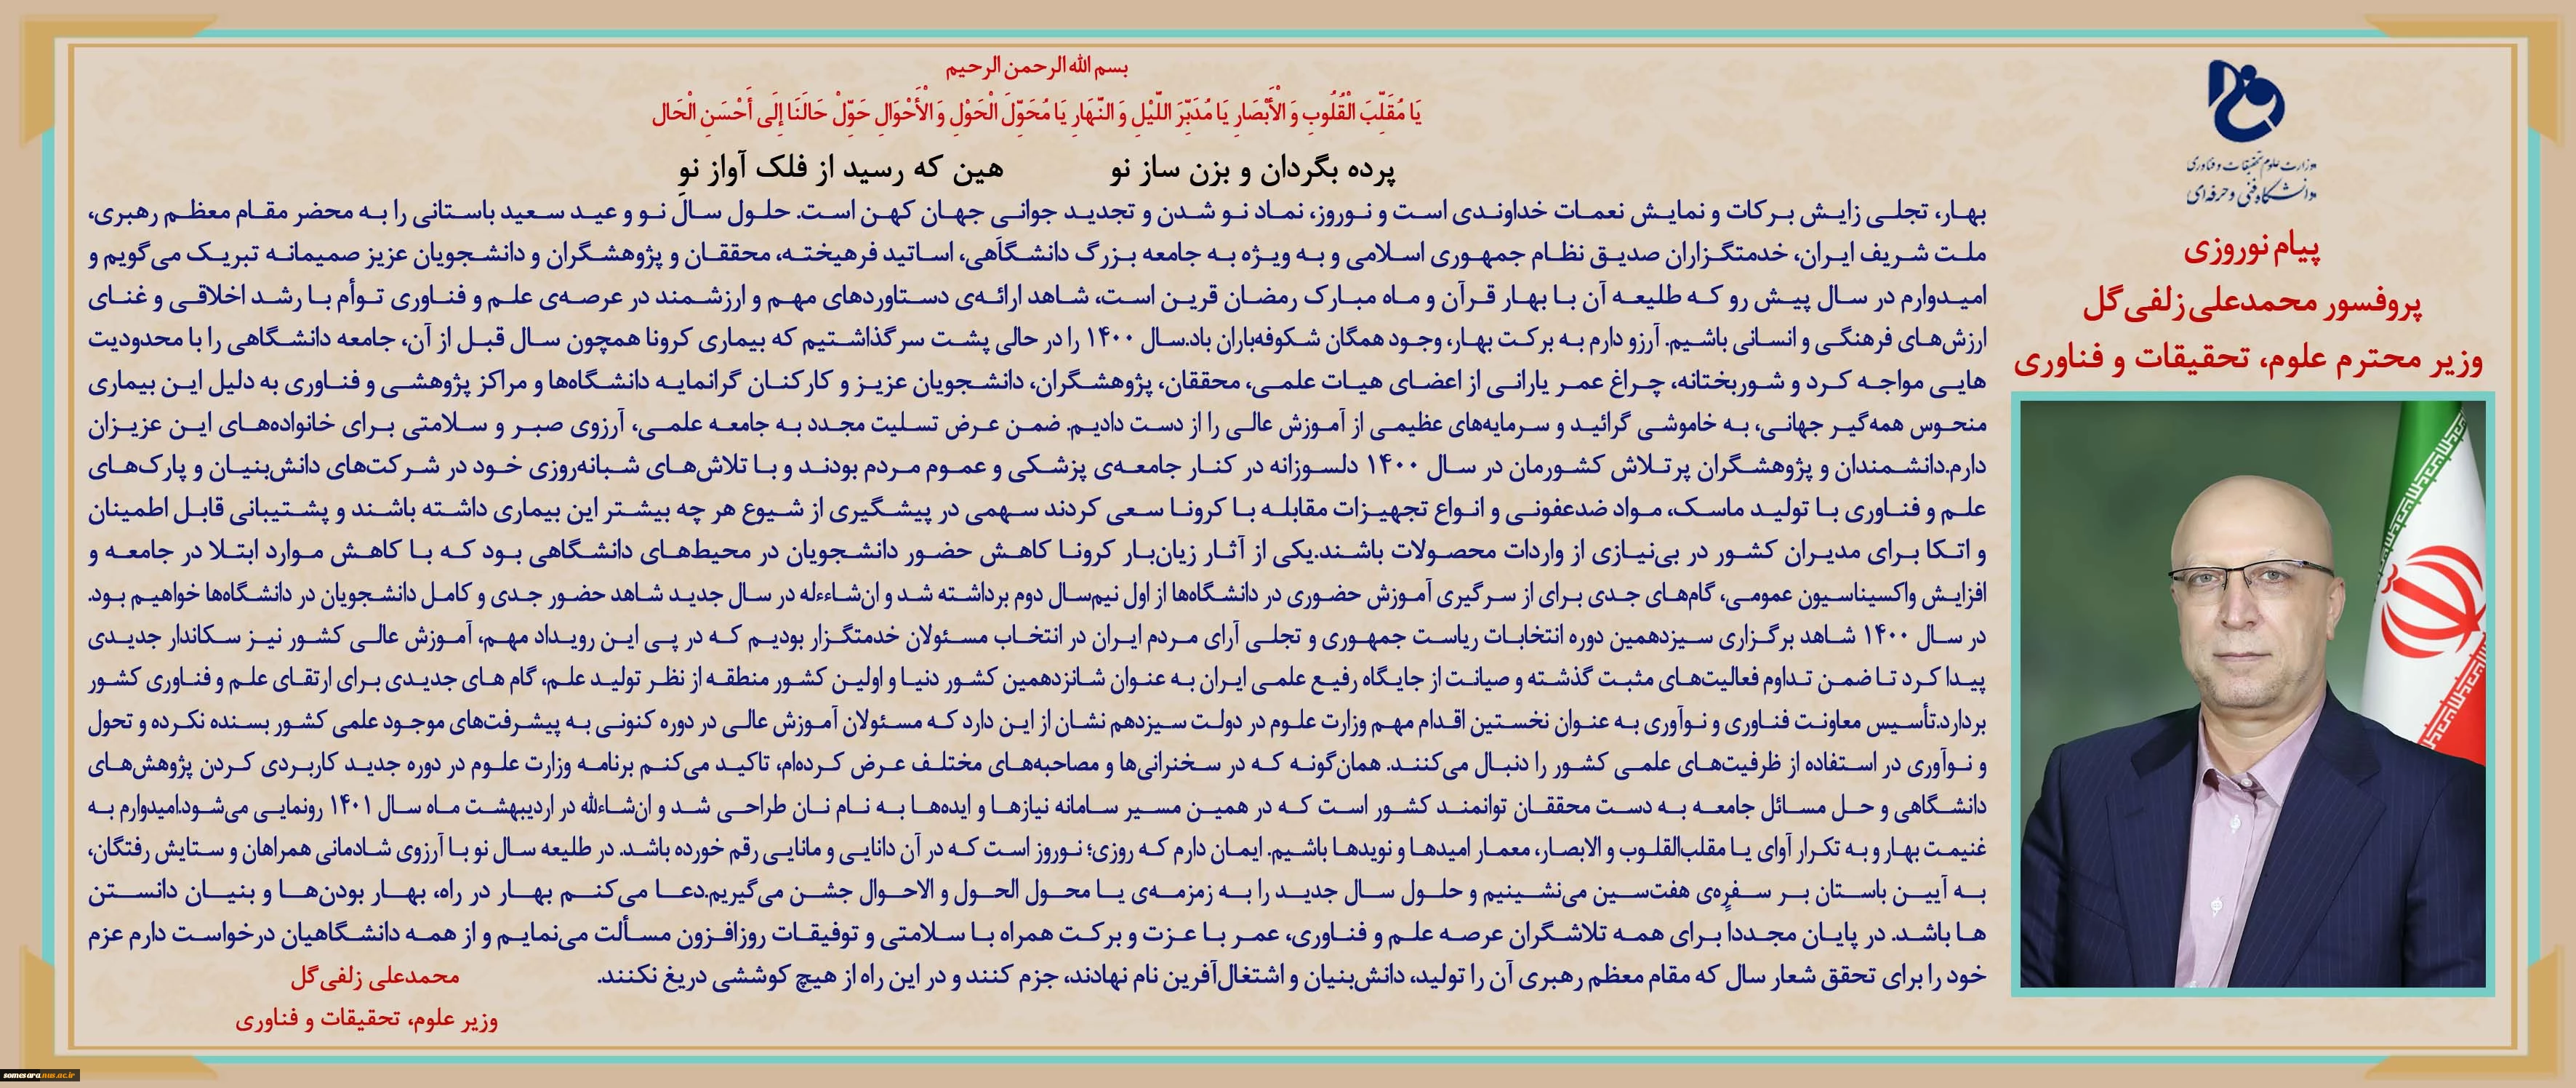 بسم الله الرحمن الرحیم
یَا مُقَلِّبَ الْقُلُوبِ وَ الْأَبْصَارِ یَا مُدَبِّرَ اللَّیْلِ وَ النَّهَارِ یَا مُحَوِّلَ الْحَوْلِ وَ الْأَحْوَالِ حَوِّلْ حَالَنَا إِلَى أَحْسَنِ الْحَال
پرده بگردان و بزن ساز نو هین که رسید از فلک آواز نو
بهار، تجلی زایش برکات و نمایش نعمات خداوندی است و نوروز، نماد نو شدن و تجدید جوانی جهان کهن است. حلول سال نو و عید سعید باستانی را به محضر مقام معظم رهبری،
ملت شریف ایران، خدمتگزاران صدیق نظام جمهوری اسلامی و به ویژه به جامعه بزرگ دانشگاهی، اساتید فرهیخته، محققان و پژوهشگران و دانشجویان عزیز صمیمانه تبریک می‌گویم و
امیدوارم در سال پیش رو که طلیعه آن با بهار قرآن و ماه مبارک رمضان قرین است، شاهد ارائه‌ی دستاوردهای مهم و ارزشمند در عرصه‌ی علم و فناوری توأم با رشد اخلاقی و غنای
ارزش‌های فرهنگی و انسانی باشیم. آرزو دارم به برکت بهار، وجود همگان شکوفه‌باران باد.سال ۱۴۰۰ را در حالی پشت سر گذاشتیم که بیماری کرونا همچون سال قبل از آن، جامعه دانشگاهی را با محدودیت
هایی مواجه کرد و شوربختانه، چراغ عمر یارانی از اعضای هیات علمی، محققان، پژوهشگران، دانشجویان عزیز و کارکنان گرانمایه دانشگاه‌ها و مراکز پژوهشی و فناوری به دلیل این بیماری
منحوس همه‌گیر جهانی، به خاموشی گرائید و سرمایه‌های عظیمی از آموزش عالی را از دست دادیم. ضمن عرض تسلیت مجدد به جامعه علمی، آرزوی صبر و سلامتی برای خانواده‌های این عزیزان
دارم.دانشمندان و پژوهشگران پرتلاش کشورمان در سال ۱۴۰۰ دلسوزانه در کنار جامعه‌ی پزشکی و عموم مردم بودند و با تلاش‌های شبانه‌روزی خود در شرکت‌های دانش‌بنیان و پارک‌های
علم و فناوری با تولید ماسک، مواد ضدعفونی و انواع تجهیزات مقابله با کرونا سعی کردند سهمی در پیشگیری از شیوع هر چه بیشتر این بیماری داشته باشند و پشتیبانی قابل اطمینان
و اتکا برای مدیران کشور در بی‌نیازی از واردات محصولات باشند.یکی از آثار زیان‌بار کرونا کاهش حضور دانشجویان در محیط‌های دانشگاهی بود که با کاهش موارد ابتلا در جامعه و
افزایش واکسیناسیون عمومی، گام‌های جدی برای از سرگیری آموزش حضوری در دانشگاه‌ها از اول نیم‌سال دوم برداشته شد و ان‌شاءءله در سال جدید شاهد حضور جدی و کامل دانشجویان در دانشگاه‌ها خواهیم بود.
در سال ۱۴۰۰ شاهد برگزاری سیزدهمین دوره انتخابات ریاست جمهوری و تجلی آرای مردم ایران در انتخاب مسئولان خدمتگزار بودیم که در پی این رویداد مهم، آموزش عالی کشور نیز سکاندار جدیدی
پیدا کرد تا ضمن تداوم فعالیت‌های مثبت گذشته و صیانت از جایگاه رفیع علمی ایران به عنوان شانزدهمین کشور دنیا و اولین کشور منطقه از نظر تولید علم، گام های جدیدی برای ارتقای علم و فناوری کشور
بردارد.تأسیس معاونت فناوری و نوآوری به عنوان نخستین اقدام مهم وزارت علوم در دولت سیزدهم نشان از این دارد که مسئولان آموزش عالی در دوره کنونی به پیشرفت‌های موجود علمی کشور بسنده نکرده و تحول
و نوآوری در استفاده از ظرفیت‌های علمی کشور را دنبال می‌کنند. همان‌گونه که در سخنرانی‌ها و مصاحبه‌های مختلف عرض کرده‌ام، تاکید می‌کنم برنامه وزارت علوم در دوره جدید کاربردی کردن پژوهش‌های
دانشگاهی و حل مسائل جامعه به دست محققان توانمند کشور است که در همین مسیر سامانه نیازها و ایده‌ها به نام نان طراحی شد و ان‌شاءالله در اردیبهشت ماه سال ۱۴۰۱ رونمایی می‌شود.امیدوارم به
غنیمت بهار و به تکرار آوای یا مقلب‌القلوب و الابصار، معمار امیدها و نویدها باشیم. ایمان دارم که روزی؛ نوروز است که در آن دانایی و مانایی رقم خورده باشد. در طلیعه سال نو با آرزوی شادمانی همراهان و ستایش رفتگان،
به آیین باستان بر سفره‌ی هفت‌سین می‌نشینیم و حلول سال جدید را به زمزمه‌ی یا محول الحول و الاحوال جشن می‌گیریم.دعا می‌کنم بهار در راه، بهار بودن‌ها و بنیان دانستن
ها باشد. در پایان مجدداً برای همه تلاشگران عرصه علم و فناوری، عمر با عزت و برکت همراه با سلامتی و توفیقات روزافزون مسألت می‌نمایم و از همه دانشگاهیان درخواست دارم عزم
خود را برای تحقق شعار سال که مقام معظم رهبری آن را تولید، دانش‌بنیان و اشتغال‌آفرین نام نهادند، جزم کنند و در این راه از هیچ کوششی دریغ نکنند.
محمدعلی زلفی‌گل
وزیر علوم، تحقیقات و فناوری
وزارت علوم تحقیقات و فناوری
دانشگاه فنی و حرفه‌ای
پیام نوروزی
پروفسور محمدعلی زلفی‌گل
وزیر محترم علوم، تحقیقات و فناوری
somesara.nus.ac.ir